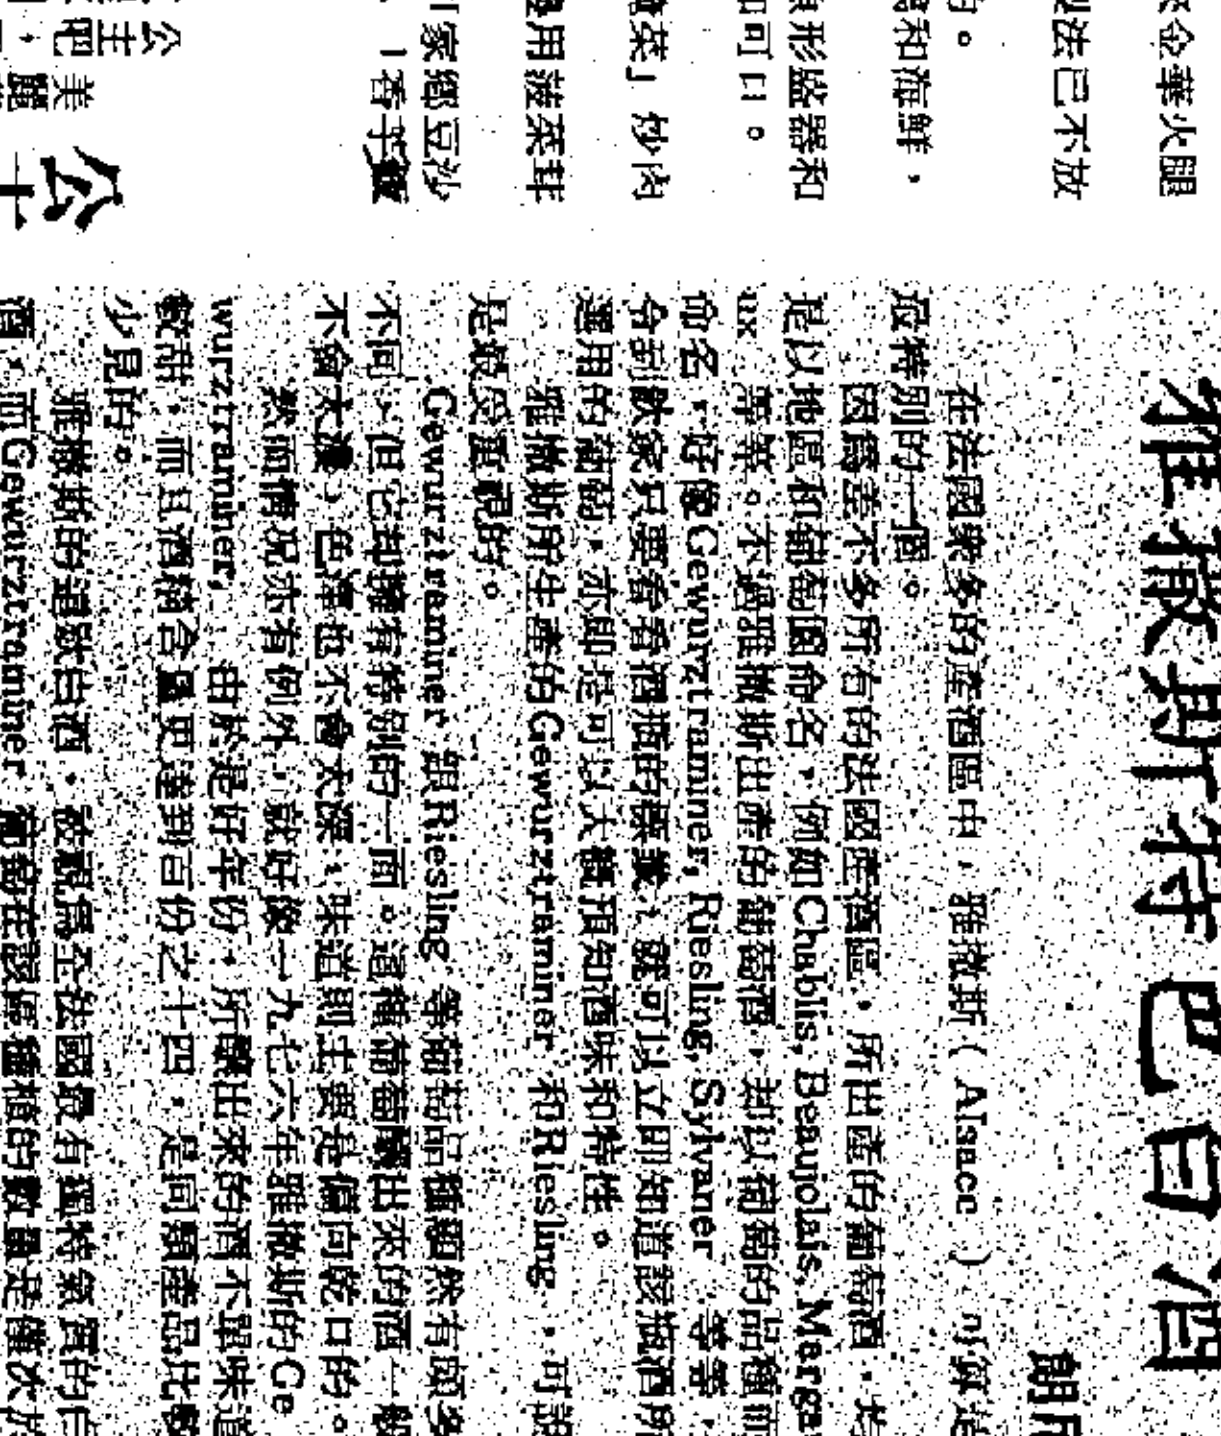 金華火腿
法已不放
的。
和海鮮，
形盛器和
可口。
菜」炒肉
用菠菜拌
家鄉豆沙
公主吧
美
公
雅撒斯特色白酒
在法國衆多的產酒區中，雅撒斯（Alsace）可算是
最特別的一個。
因爲差不多所有的法國產酒區，所出產的葡萄酒，
是以地區和葡萄園命名，例如Chablis, Beaujolais, Marga
ux 等等。不過雅撒斯出產的葡萄酒，却以葡萄的品種而
命名，好像Gewurztraminer, Riesling, Sylvaner 等等，
令到飲家只要看看酒瓶的標籤，就可以立即知道該瓶酒所
選用的葡萄，亦即是可以大概預知酒味和特性。
雅撒斯所生產的Gewurztraminer 和Riesling，可說
是最受重視的。
Gewurztraminer 跟Riesling 等葡萄品種雖然有頗多
不同，但它却擁有特別的一面。這種葡萄釀出來的酒一般
不會太濃，色澤也不會太深，味道則主要是偏向乾口的。
然而情況亦有例外，就好像一九七六年雅撒斯的Ge
wurztraminer, 由於是好年份，所釀出來的酒不單味道
較甜，而且酒精含量更達到百份之十四，是同類產品比較
少見的。
雅撒斯的這款白酒，被視爲全法國最有獨特氣質的白
酒，而Gewurztraminer 葡萄在該區種植的數量是僅次於